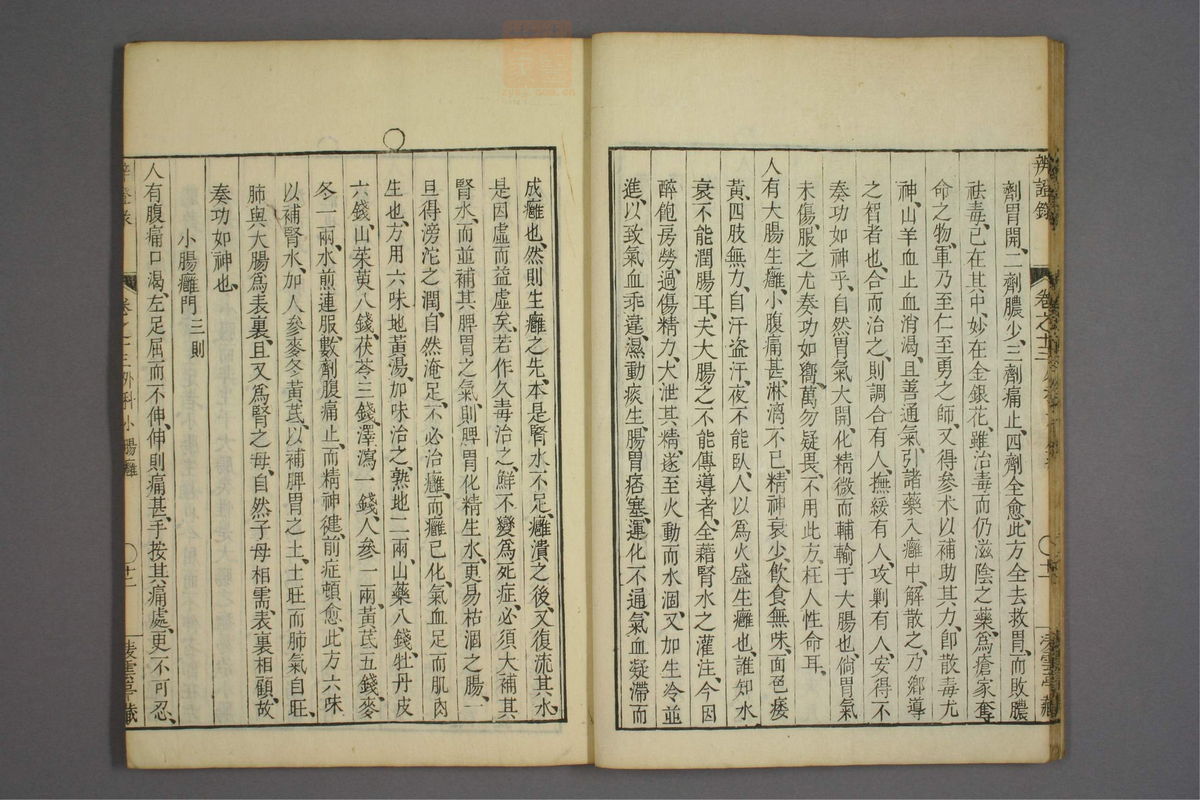 辨證錄
卷之十三
凌雲亭藏
劑胃開、二劑膿少、三劑痛止、四劑全愈、此方全去救胃、而敗膿
祛毒、已在其中、妙在金銀花、雖治毒而仍滋陰之藥、爲瘡家奪
命之物、軍乃至仁至勇之師、又得參朮以補助其力、卽散毒尤
神、山羊血止血消渴、且善通氣、引諸藥入癰中、解散之、乃鄉導
之智者也、合而治之、則調合有人、撫綏有人、攻剿有人、安得不
奏功如神乎、自然胃氣大開、化精微而輔輸于大腸也、倘胃氣
未傷、服之尤奏功如嚮、萬勿疑畏、不用此方、枉人性命耳、
人有大腸生癰、小腹痛甚、淋漓不已、精神衰少、飲食無味、面色痿
黃、四肢無力、自汗盜汗、夜不能臥、人以爲火盛生癰也、誰知水
衰不能潤腸耳、夫大腸之不能傳導者、全藉腎水之灌注、今因
醉飽房勞、過傷精力、大泄其精、遂至火動而水涸、又加生冷並
進、以致氣血乖違、濕動痰生、腸胃痞塞、運化不通、氣血凝滯而
成癰也、然則生癰之先、本是腎水不足、癰潰之後、又復流其水、
是因虛而益虛矣、若作久毒治之、鮮不變爲死症、必須大補其
腎水、而並補其脾胃之氣、則脾胃化精生水、更易枯涸之腸、一
旦得滂沱之潤、自然淹足、不必治癰、而癰已化、氣血足而肌肉
生也、方用六味地黃湯、加味治之、熟地二兩、山藥八錢、牡丹皮
六錢、山茱萸八錢、茯苓三錢、澤瀉一錢、人參一兩、黃芪五錢、麥
冬一兩、水煎連服、數劑腹痛止、而精神健、前症頓愈、此方六味
以補腎水、加人參麥冬黃芪、以補脾胃之土、土旺而肺氣自旺、
肺與大腸爲表裏、且又爲腎之母、自然子母相需、表裏相顧、故
奏功如神也、
小腸癰門 三則
人有腹痛口渴、左足屈而不伸、伸則痛甚、手按其痛處、更不可忍、
辨證錄
卷之十三外科小腸癰
廿一
凌雲亭藏